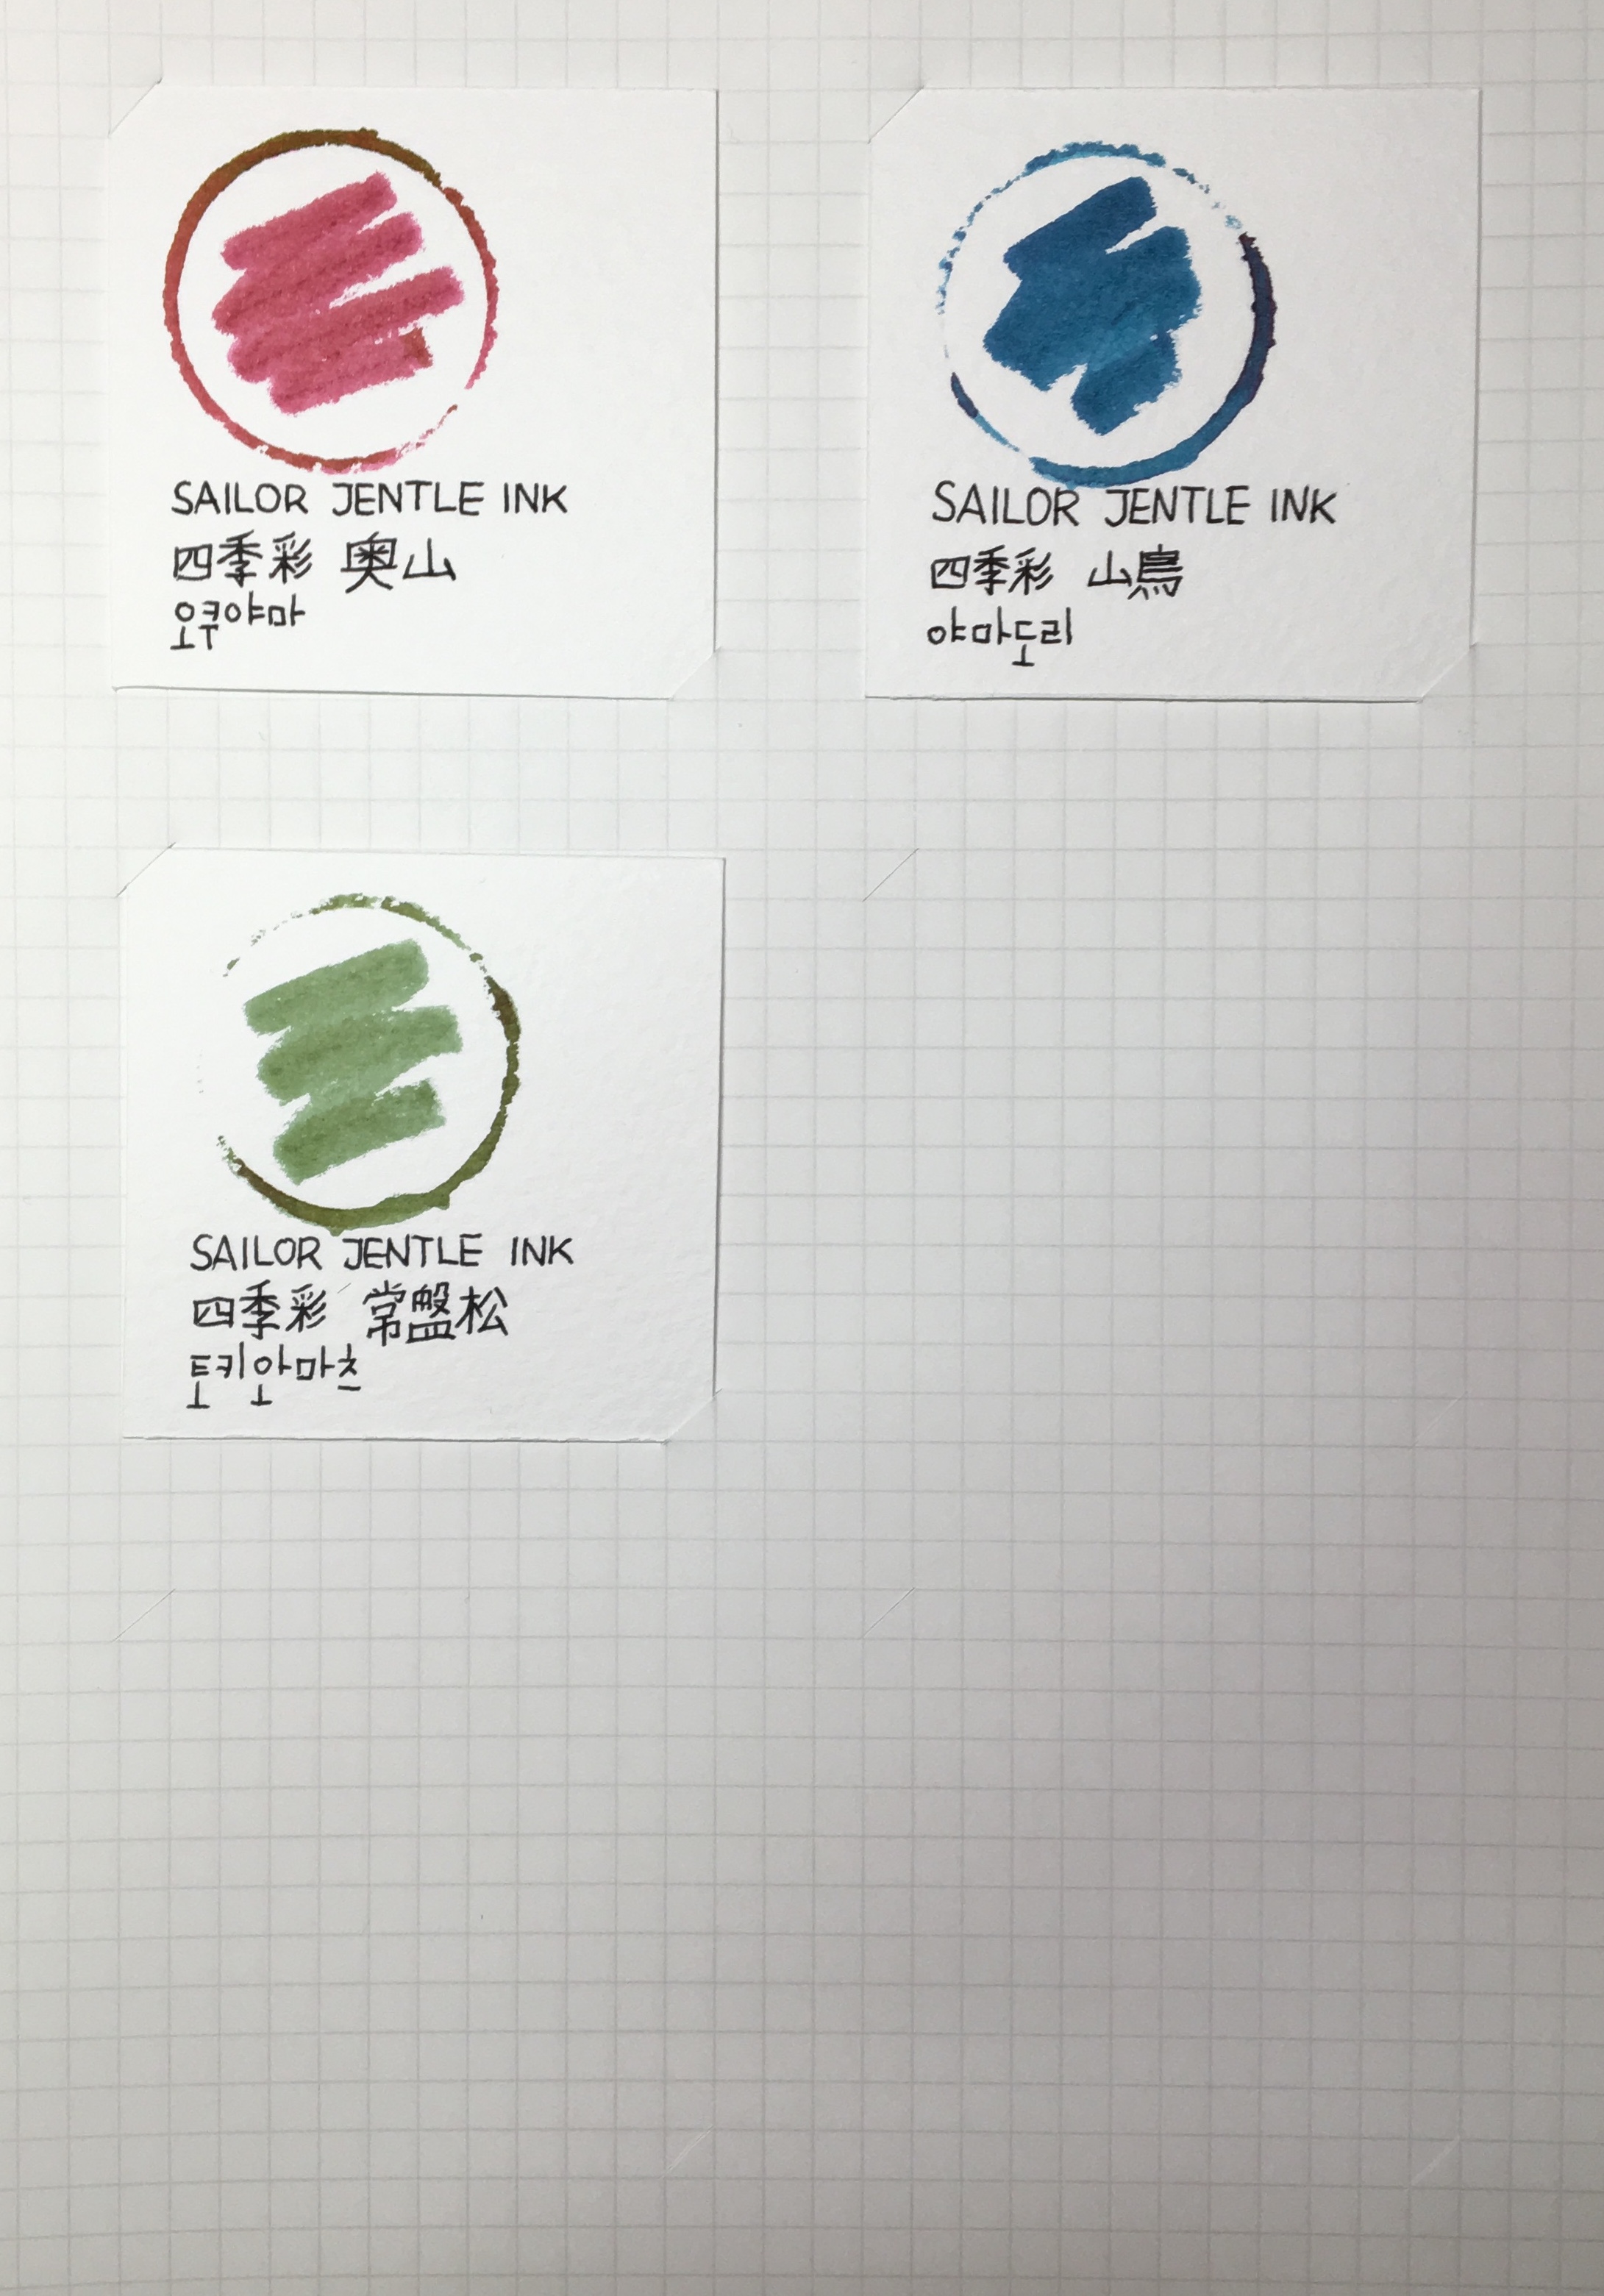 SAILOR JENTLE INK
四季彩 奥山
오쿠야마
SAILOR JENTLE INK
四季彩 山鳥
야마도리
SAILOR JENTLE INK
四季彩 常盤松
토키와마츠